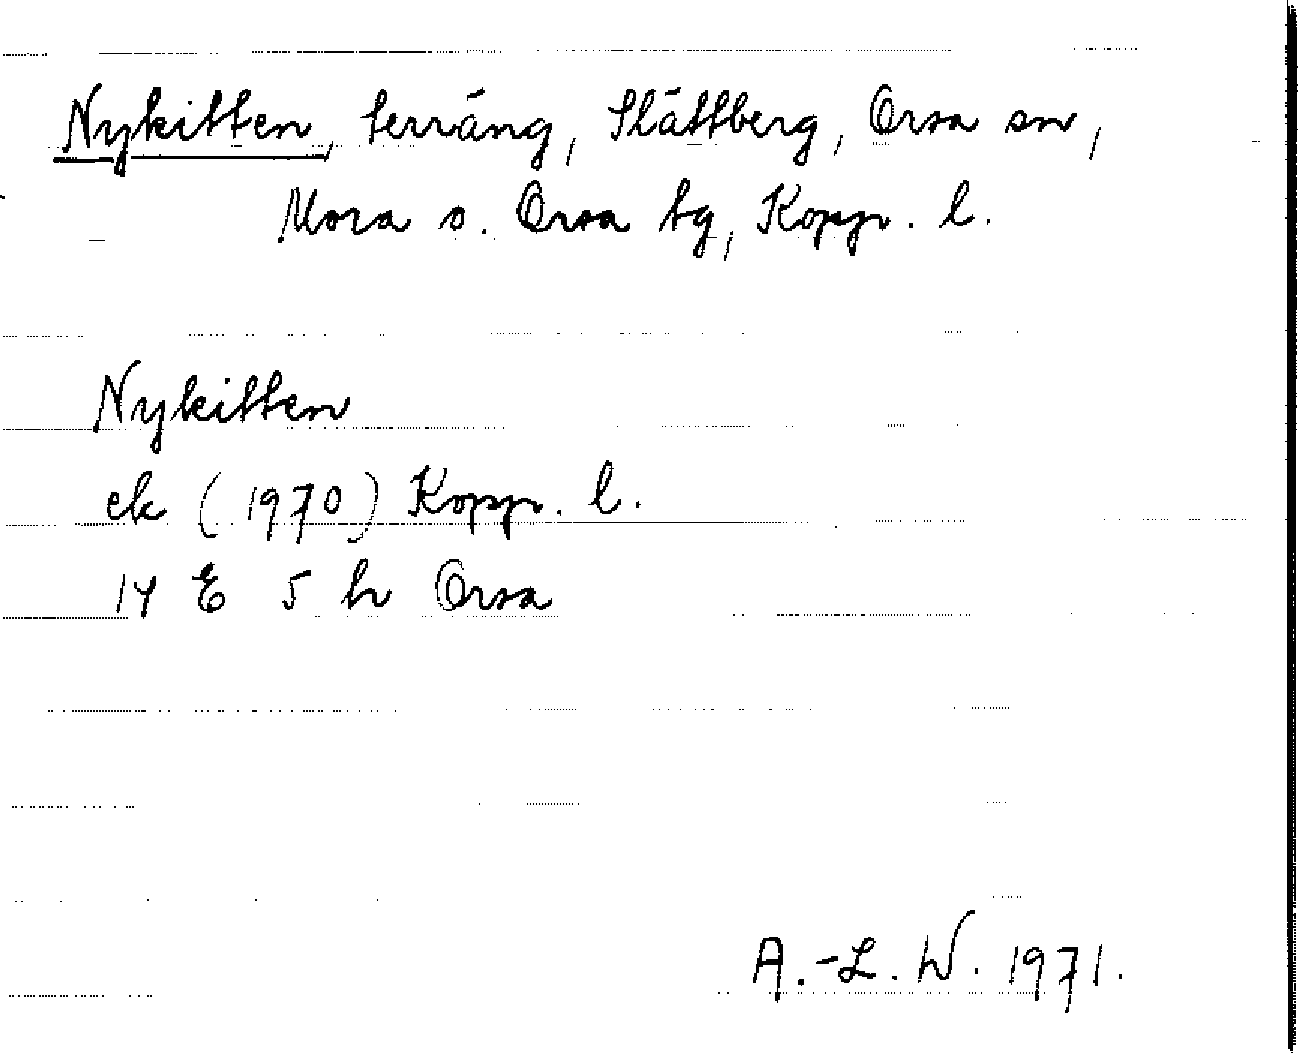 Nykitten, terräng, Slättberg, Orsa sn,
Mora o. Orsa tg, Kopp. l.
Nykitten
ek (1970) Kopp. l.
14 E 5 h Orsa
A.-L. W. 1971.